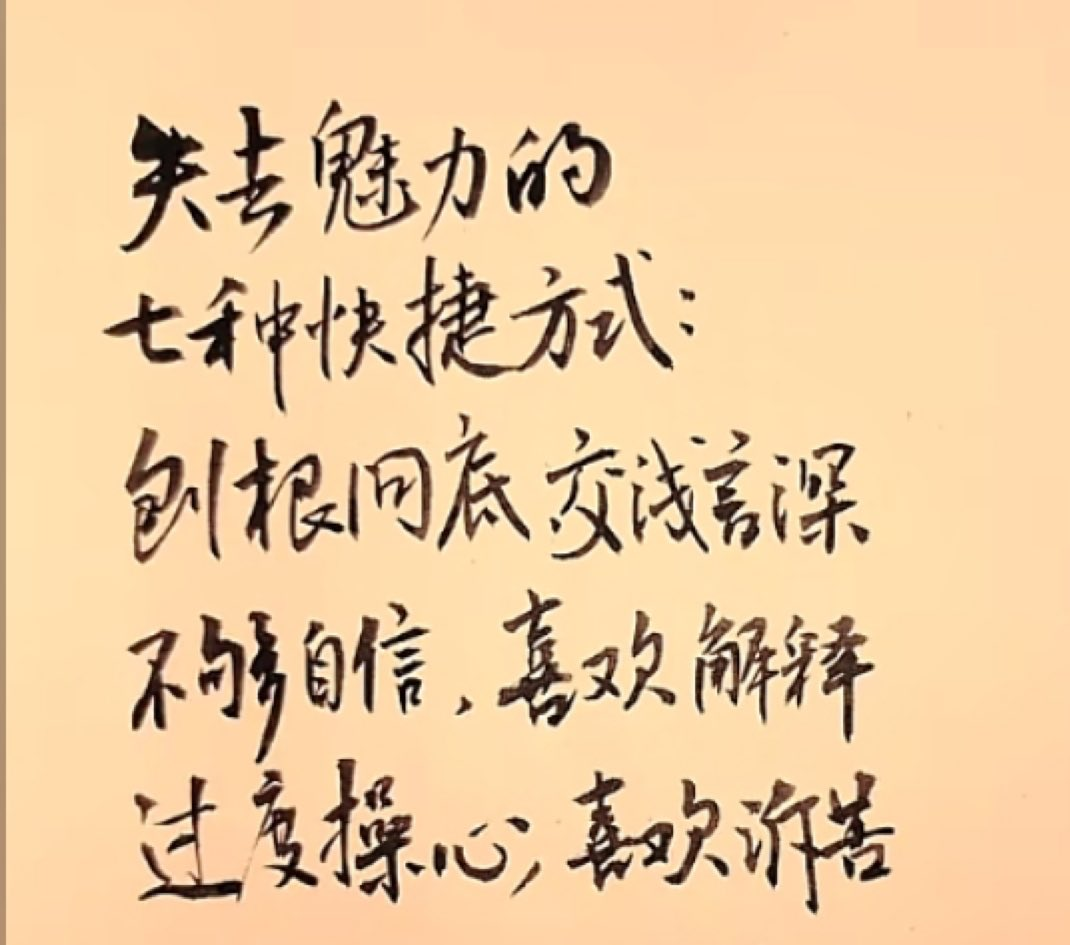 失去魅力的
七种快捷方式：
刨根问底 交浅言深
不够自信，喜欢解释
过度操心，喜欢诉苦